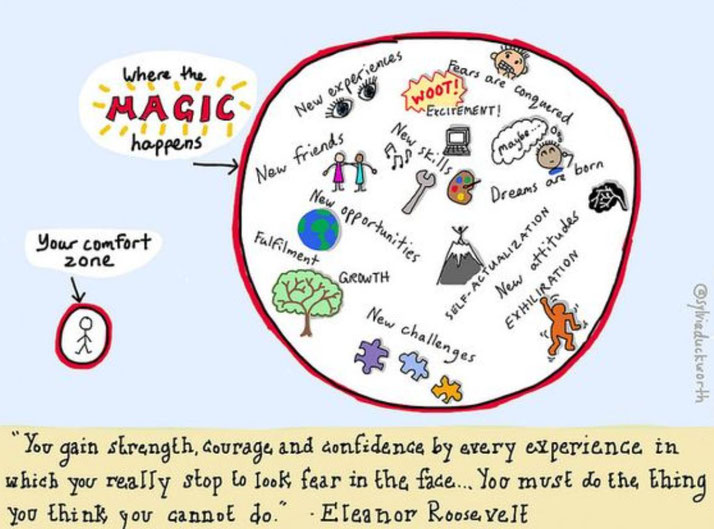 where the
MAGIC
happens
Your comfort
zone
New experiences
Fears are conquered
WOOT!
EXCITEMENT!
New friends
New skills
Maybe...
Dreams are born
New opportunities
Fulfilment
GROWTH
SELF-ACTUALIZATION
New attitudes
EXHILIRATION
New challenges
@sylviaduckworth
"You gain strength, courage and confidence by every experience in
which you really stop to look fear in the face... You must do the thing
you think you cannot do." - Eleanor Roosevelt